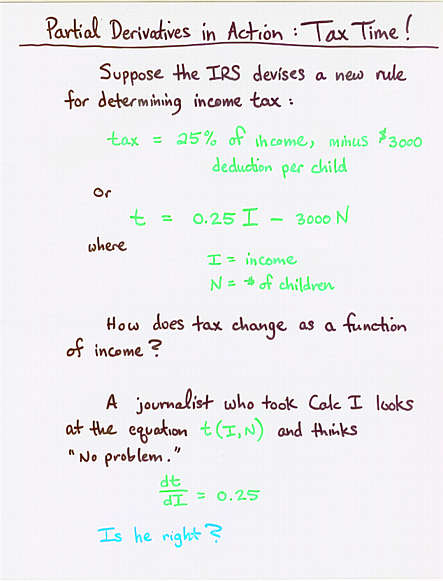 Partial Derivatives in Action : Tax Time!
Suppose the IRS devises a new rule
for determining income tax :
tax = 25% of income, minus $3000
deduction per child
Or
t = 0.25 I - 3000 N
where
I = income
N = # of children
How does tax change as a function
of income?
A journalist who took Calc I looks
at the equation t(I,N) and thinks
"No problem."
dt/dI = 0.25
Is he right?